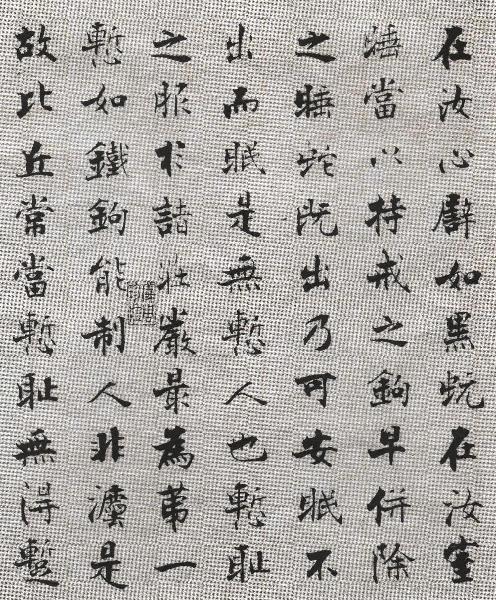 在汝心譬如黑蚖在汝室
睡當以持戒之鉤早併除
之睡蛇既出乃可安眠不
出而眠是無慙人也慙耻
之服於諸莊嚴最為苐一
慙如鐵鉤能制人非灋是
故比丘常當慙耻無得蹔